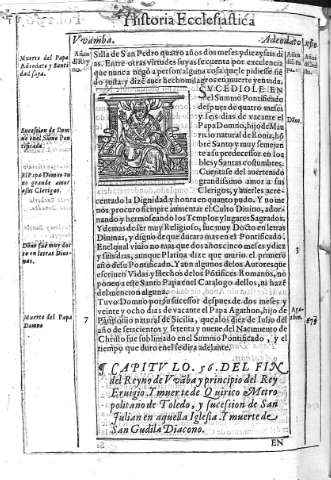 Historia Ecclesiastica
Vvamba.
Adeodato
Silla de San Pedro quatro años dos meses y diez y seis di
as. Entre otras virtudes suyas se cuenta por excelencia
que nunca negò a persona alguna cosa que le pidiesse siẽ
do justa y dize que hecho milagro en muerte y en vida.
Muerte del Papa
Adeodato y Santi
dad suya.
SVCEDIOLE EN
el Summo Pontificado
despues de quatro meses
y seis dias de vacante el
Papa Domno, hijo de Mau
ricio natural de Roma, hõ
bre Santo y muy semejan
te a su predecessor en los
bles y Santas costumbres.
Domno
Papa Domno tu
uo grande amor
a sus Clerigos.
grandissimo amor a sus
Clerigos, y auerles acre-
centado la Dignidad y honra en quanto pudo. Y no me
nos procuro siempre aumentar el Culto Diuino, ador
nando y hermoseando los Templos y lugares Sagrados.
Y demas de ser muy Religioso, fue muy Docto en letras
Diuinas, y digno de que durara mas en el Pontificado.
Domno fue muy doc
to en letras Diui-
nas.
En el qual viuio no mas que dos años cinco meses y diez
y seis dias, aunque Platina dize que murio el primero
año de su Pontificado. Y aun algunos de los Autores que
escriuen Vidas y hechos de los Põtifices Romanos, no
ponen a este Santo Papa en el Catalogo dellos, ni hazẽ
del mencion alguna.
3
Muerte del Papa
Domno
7
Tuvo Domno por su sucessor despues de dos meses y
veynte y ocho dias de vacante el Papa Agathon, hijo de
Panonio natural de Sicilia, que a los diez de Iulio del
año de seiscientos y setenta y nueue del Nacimiento de
Christo fue sublimado en el Summo Pontificado, y el
tiempo que duro en el se dira adelante.
679
CAPITVLO. 56. DEL FIN
del Reyno de Vvãba y principio del Rey
Eruigio. Y muerte de Quirico Metro
politano de Toledo, y sucession de San
Iulian en aquella Iglesia. Y muerte de
San Gudila Diacono.
EN